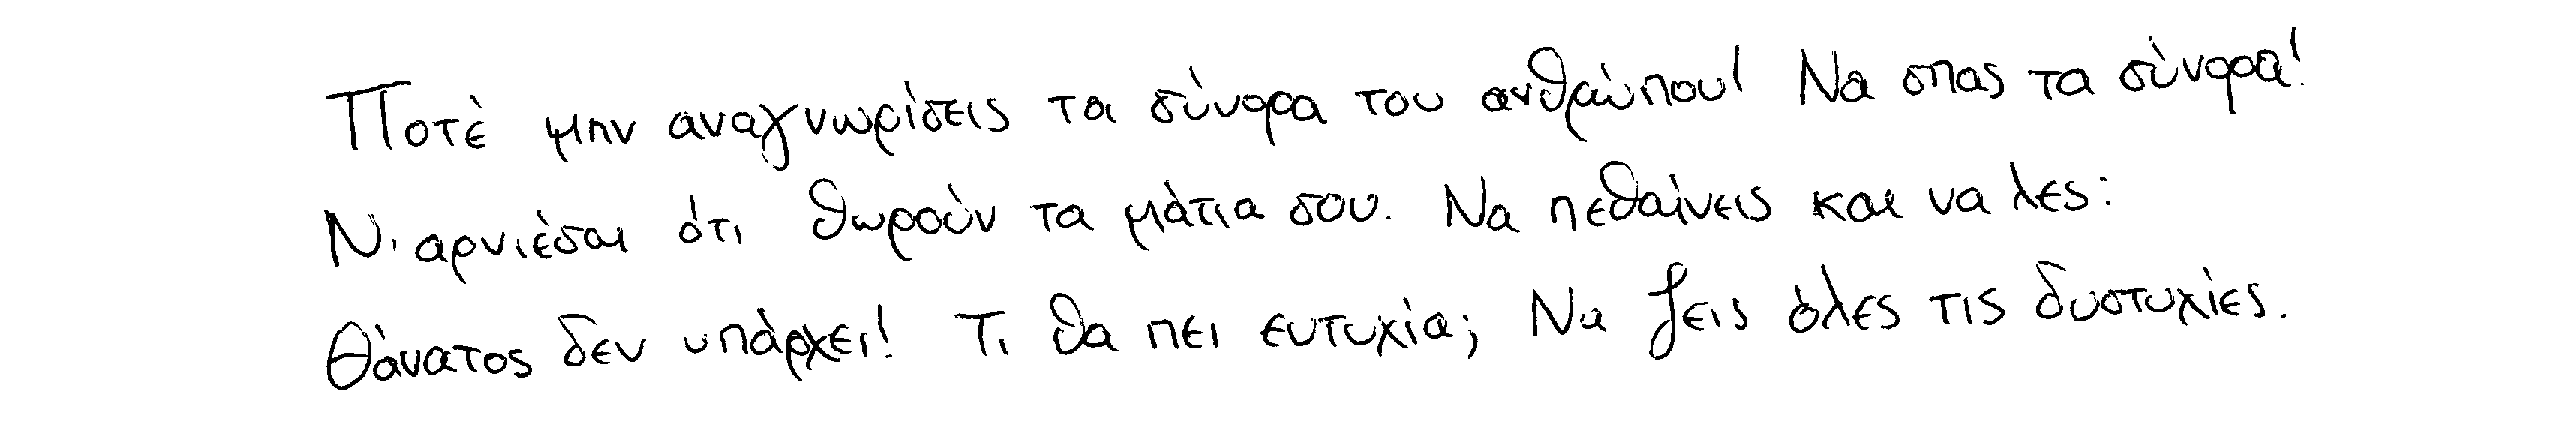 Ποτέ μην αναγνωρίσεις τα σύνορα του ανθρώπου! Να σπας τα σύνορα!
Ν' αρνιέσαι ότι θωρούν τα μάτια σου. Να πεθαίνεις και να λες:
Θάνατος δεν υπάρχει! Τι θα πει ευτυχία; Να ζεις όλες τις δυστυχίες.